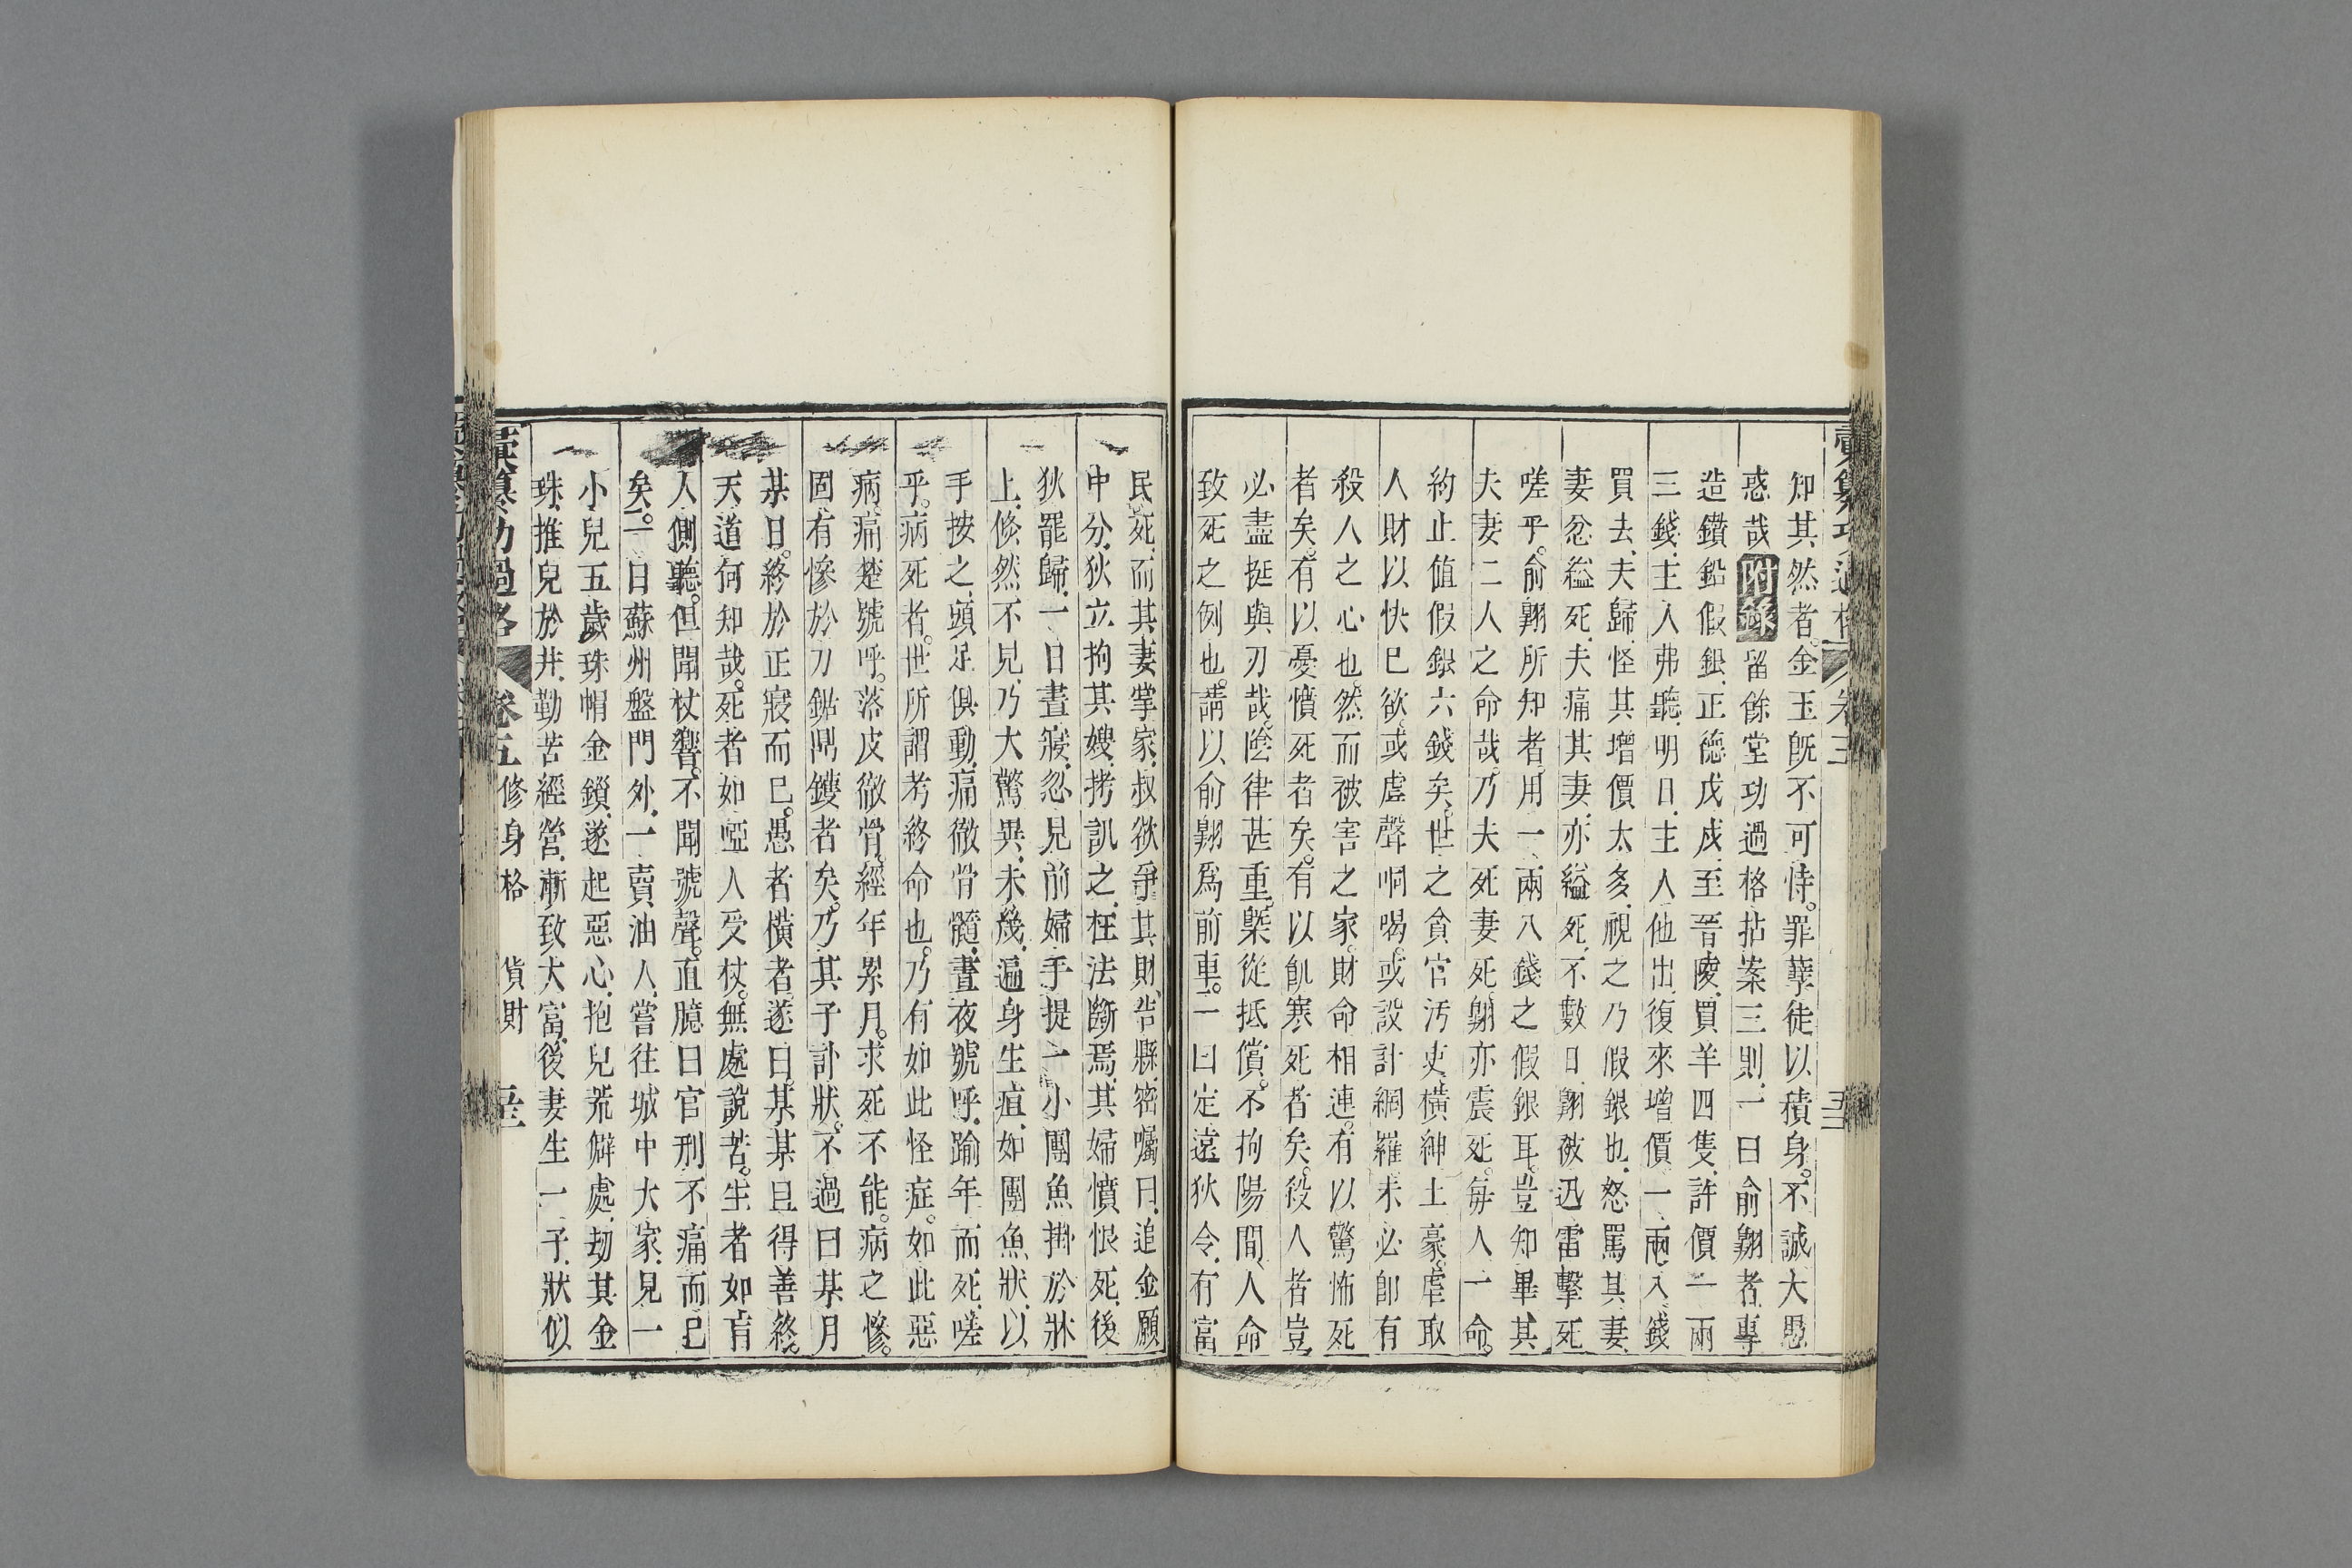 知其然者。金玉既不可恃。罪孽徒以積身。不誠大愚
惑哉附錄留餘堂功過格拈案三則。一曰俞翱者。專
造鑽鉛假銀。正德戊戌。至晉陵。買羊四隻。許價一兩
三錢。主人弗聽。明日。主人他出。復來增價一兩八錢
買去。夫歸。怪其增價太多。視之乃假銀也。怒罵其妻。
妻忿縊死。夫痛其妻。亦縊死。不數日。翱被迅雷擊死
嗟乎。俞翱所知者。用一兩八錢之假銀耳。豈知畢其
夫妻二人之命哉。乃夫死妻死。翱亦震死。每人一命。
約止值假銀六錢矣。世之貪官汚吏。橫紳土豪。虐取
人財以快已欲。或虛聲嚇喝。或設計網羅。未必卽有
殺人之心也。然而被害之家。財命相連。有以驚怖死
者矣。有以憂憤死者矣。有以飢寒死者矣。殺人者豈
必盡挺與刃哉。陰律甚重。槩從抵償。不拘陽間人命
致死之例也。請以俞翱爲前車。二曰定遠狄令。有富
民死。而其妻掌家。叔欲爭其財。告縣。密囑曰。追金願
中分。狄立拘其嫂。拷訊之。枉法斷焉。其婦憤恨死。後
狄罷歸。一日晝寢。忽見前婦手提一小團魚。掛於牀
上。倏然不見。乃大驚異。未幾。遍身生疽。如團魚狀。以
手按之。頭足俱動。痛徹骨髓。晝夜號呼。踰年而死。嗟
乎。病死者。世所謂考終命也。乃有如此怪症。如此惡
病。痛楚號呼。落皮徹骨。經年累月。求死不能。病之慘。
固有慘於刀鋸鼎鑊者矣。乃其子訃狀。不過曰某月
某日。終於正寢而已。愚者橫者。遂曰。某某且得善終。
天道何知哉。死者如啞人受杖。無處說苦。生者如盲
人側聽。但聞杖響。不聞號聲。直臆曰官刑不痛而已
矣。三曰蘇州盤門外。一賣油人。嘗往城中大家。見一
小兒五歲。珠帽金鎖。遂起惡心。抱兒荒僻處。劫其金
珠。推兒於井。勤苦經營。漸致大富。後妻生一子。狀似
彙纂功過格 卷五 修身格 貨財